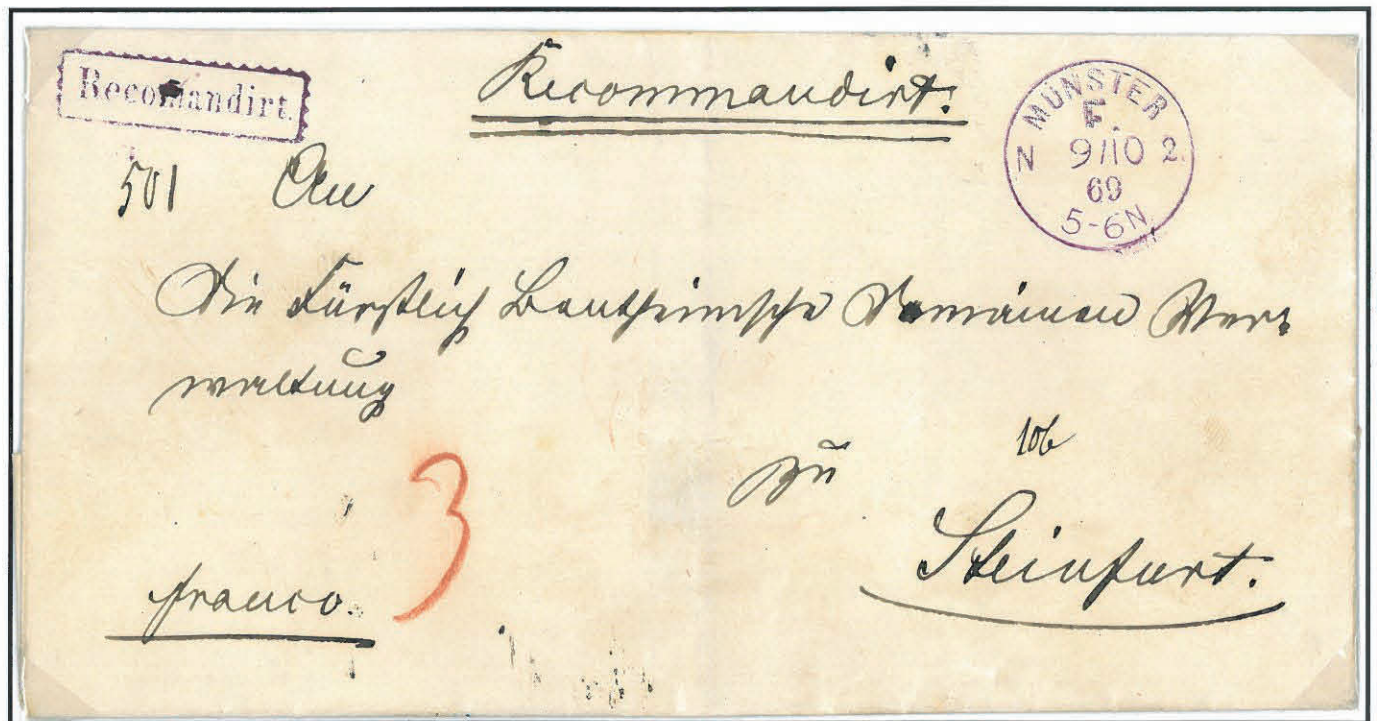 Recomandirt.
Recommandirt.
MÜNSTER
F.
N 9/10 2.
69
5-6N
501 An
die Fürstlich Bentheimsche Domainen Ver-
waltung
zu
106
Steinfurt.
3
franco.